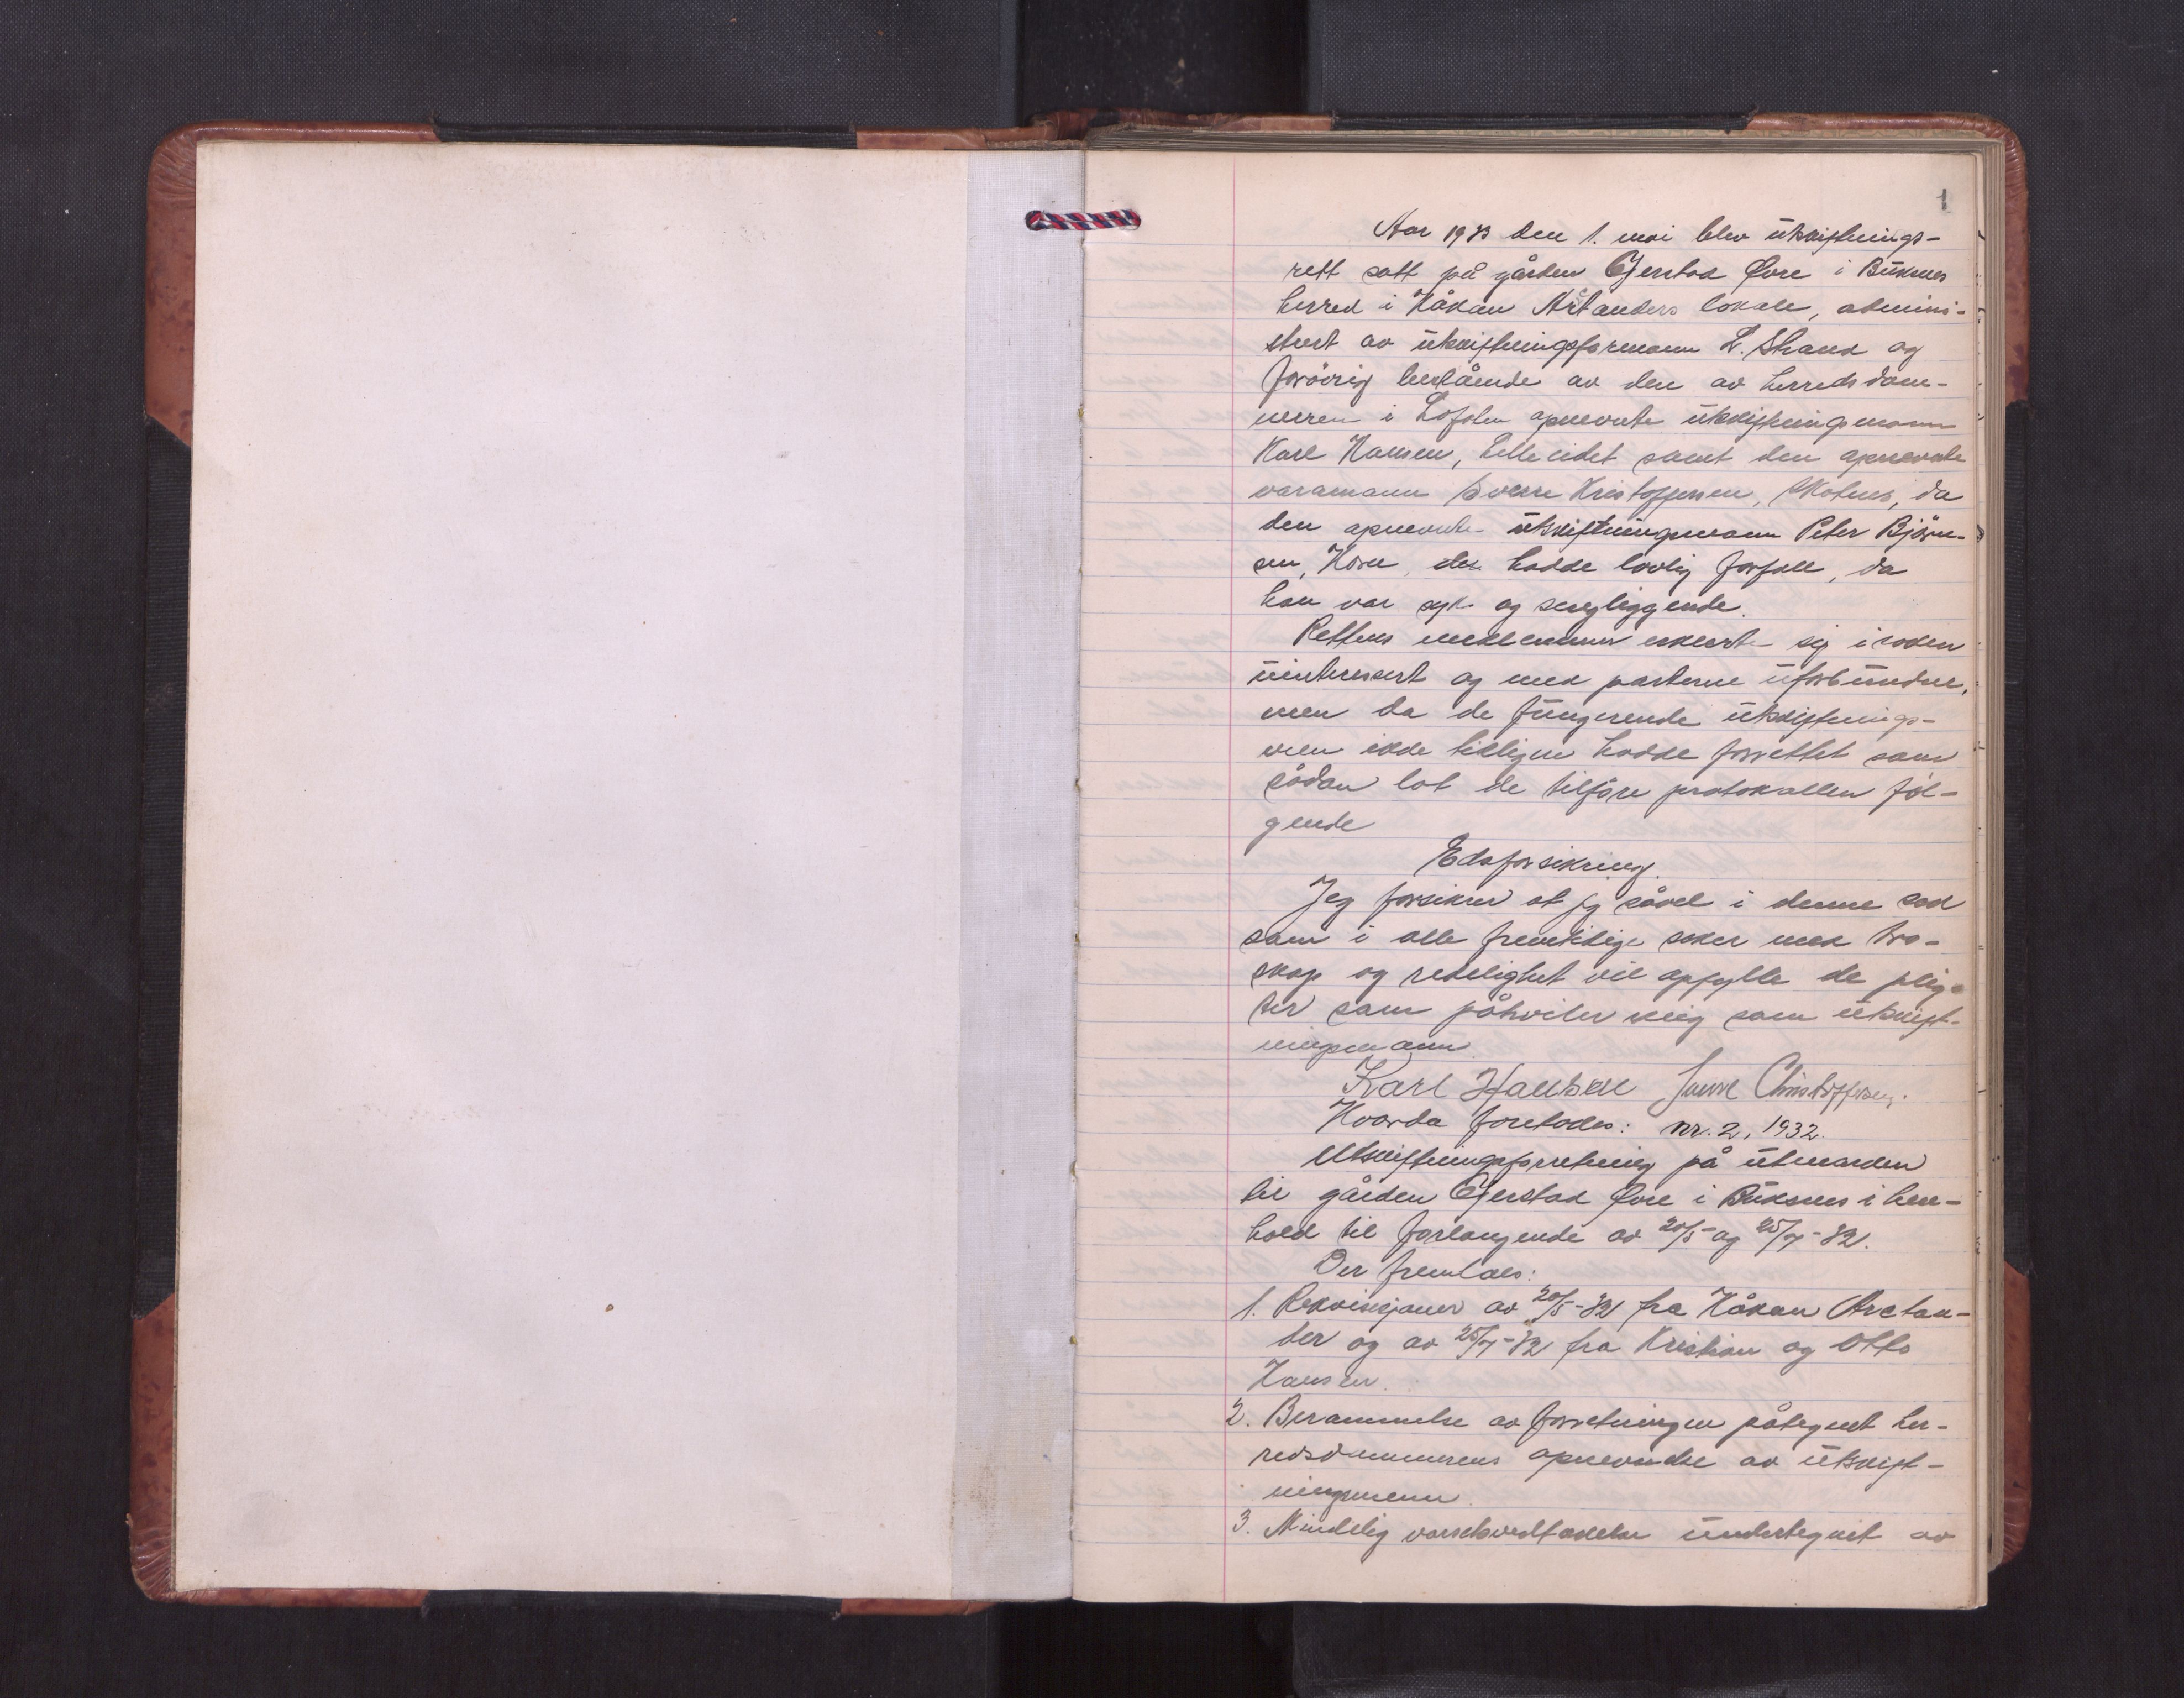 1
Aar 1933 den 1. mai blev utskiftnings-
rett satt på gården Gjerstad Øvre i Buksnes
herred i Håkan Arctanders lokale, admini-
strert av utskiftningsformann L. Strand og
forövrig bestående av den av herredsdom-
meren i Lofoten opnevnte utskiftningsmann
Karl Hansen, Lilleeidet samt den opnevnte
varamann Sverre Kristoffersen, da
den opnevnte utskiftningsmann Peter Björn-
sen, Horn, hadde lovlig forfall, da
han var syk og sengliggende.
Rettens medlemmer erklærte sig i saken
uinteressert og med parterne uforbundne,
men da de fungerende utskiftnings-
men ikke tidligere hadde forrettet som
sådan lot de tilföre protokollen föl-
gende
Edsforsikring.
Jeg forsikrer at jeg såvel i denne sak
som i alle fremtidige saker med tro-
skap og redelighet vil opfylle de plig-
ter som påhviler mig som utskift-
ningsmann
Karl Hansen Sverre Christoffersen.
Hvorda foretokes: nr. 2, 1932.
Utskiftningsforretning på utmarken
til gården Gjerstad Øvre i Buksnes i hen-
hold til forlangende av 20/5- og 25/7-32.
Der fremlaes:
1. Rekvisisjoner av 20/5-32 fra Håkan Arctan-
der og av 25/7-32 fra Kristian og Otto
Hansen.
2. Berammelse av forretningen påtegnet her-
redsdommerens opnevnelse av utskift-
ningsmenn.
3. Mindelig varselsvedtakelse undertegnet av